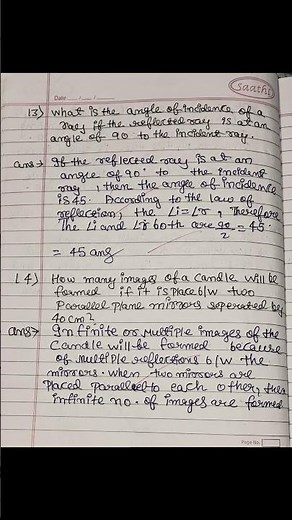 saathi
Date
13) What is the angle of incidence of a
ray if the reflected ray is at an
angle of 90 to the incident ray.
ans→ If the reflected ray is at an
angle of 90° to the incident
ray, then the angle of incidence
is 45. According to the law of
reflection, the Li=Lr, Therefore
The Li and Lr both are 90/2 = 45.
= 45 ans
14) How many images of a candle will be
formed if it is place b/w two
Parallel plane mirrors seperated by
40 cm?
ans→ Infinite or Multiple images of the
Candle will be formed because
of Multiple reflections b/w the
mirrors. when two mirrors are
placed parallel to each other, then
infinite no. of images are formed
Page No.